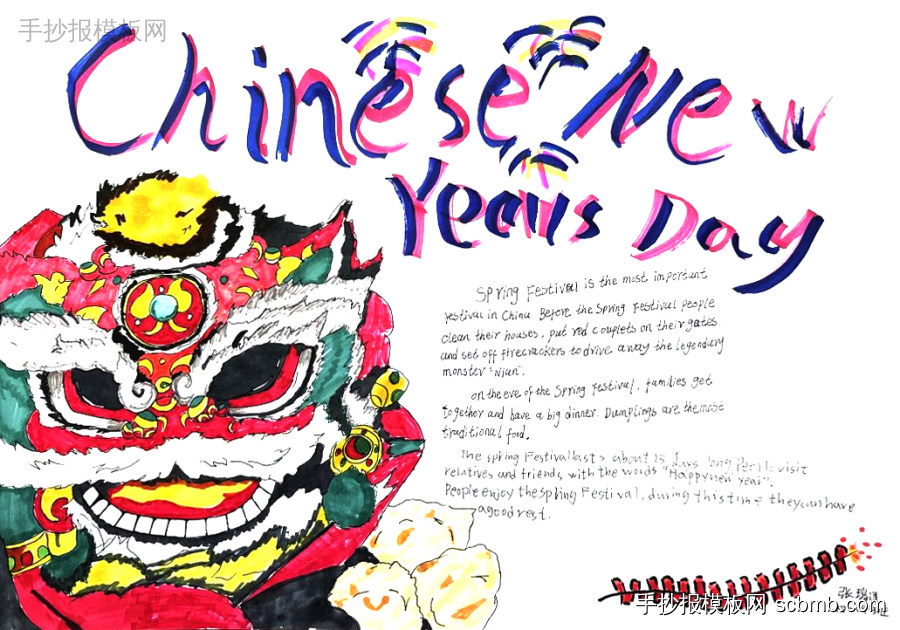 手抄报模板网
Chinese New
Years Day
Spring Festival is the most important
festival in China Before the Spring Festival people
clean their houses, put red couplets on their gates.
and set off firecrackers to drive away the legendary
monster "Nian".
on the eve of the Spring Festival, families get
together and have a big dinner. Dumplings are the most
traditional food.
The spring Festival lasts about 15 days long People visit
relatives and friends, with the words "Happy new year".
People enjoy the spring Festival, during this time they can have
a good rest.
张
手抄报模板网 scbmb.com